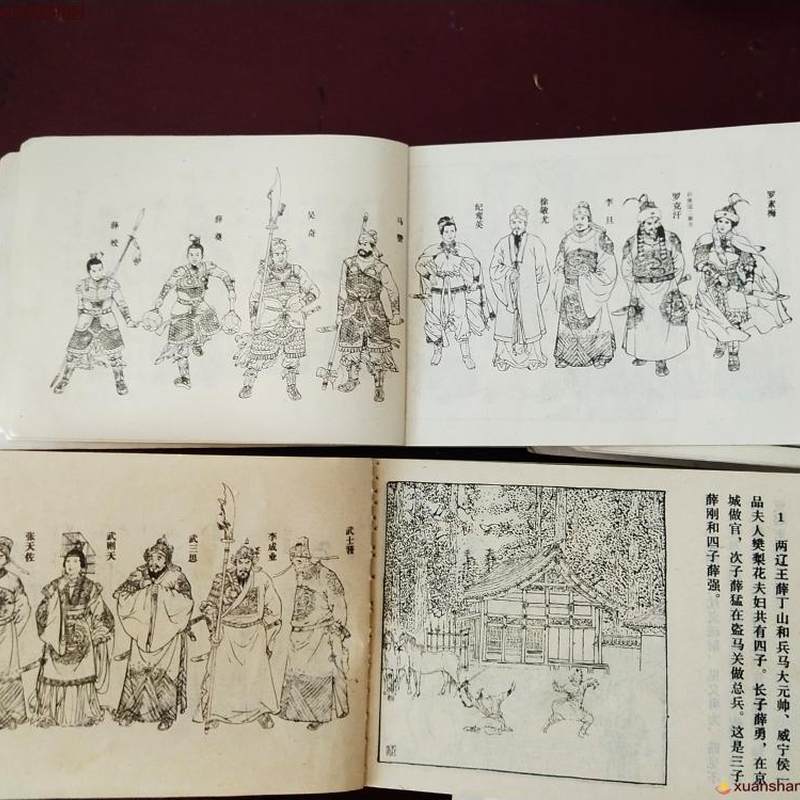 薛蛟
薛葵
吴奇
马赞
纪鸾英
徐敬尤
李旦
罗克汗
罗素梅
张天佐
武则天
武三思
李成业
1 两辽王薛丁山和兵马大元帅、威宁侯一
品夫人樊梨花夫妇共有四子。长子薛勇，在京
城做官，次子薛猛在盗马关做总兵。这是三子
薛刚和四子薛强。
xuanshan